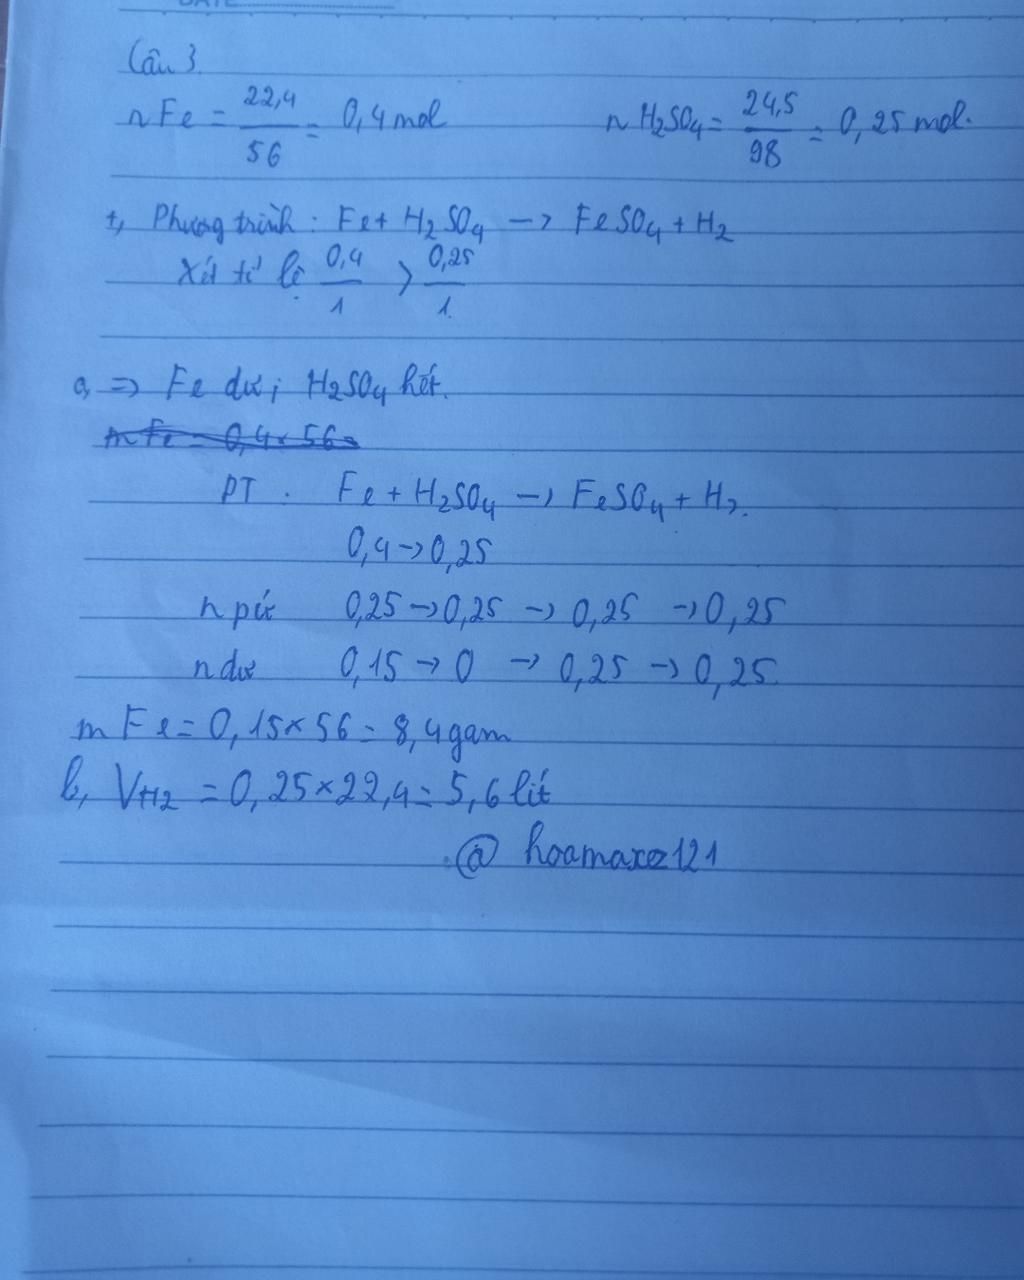 DATE
Câu 3.
nFe = 22,4/56 = 0,4 mol nH2SO4 = 24,5/98 = 0,25 mol.
+, Phương trình: Fe + H2SO4 -> FeSO4 + H2
Xét tỉ lệ 0,4/1 > 0,25/1.
a, => Fe dư; H2SO4 hết.
mFe = 0,4 x 56 =
PT. Fe + H2SO4 -> FeSO4 + H2.
0,4 -> 0,25
n pứ 0,25 -> 0,25 -> 0,25 -> 0,25
n dư 0,15 -> 0 -> 0,25 -> 0,25
mFe = 0,15 x 56 = 8,4 gam
b, VH2 = 0,25 x 22,4 = 5,6 lít